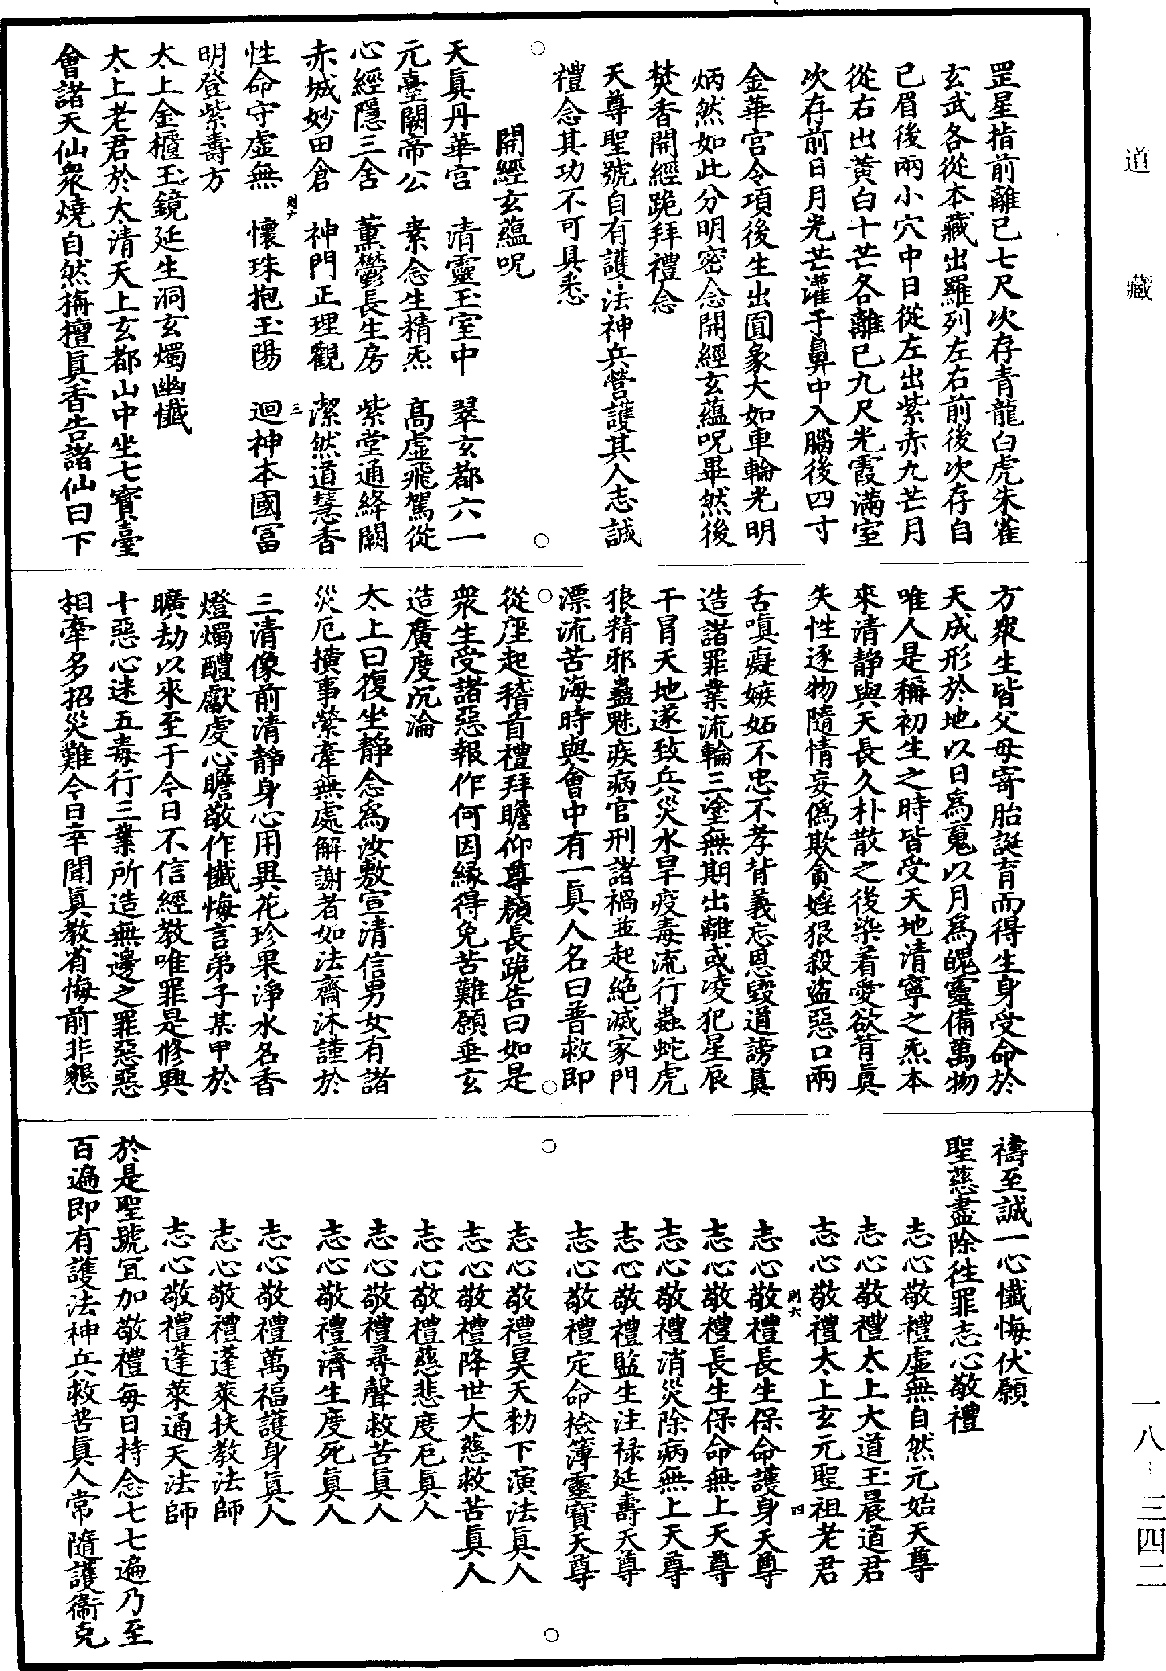 道藏
罡星指前離己七尺次存青龍白虎朱雀
玄武各從本藏出羅列左右前後次存自
己眉後兩小穴中日從左出紫赤九芒月
從右出黃白十芒各離己九尺光霞滿室
次存前日月光芒灌于鼻中入腦後四寸
金華宮令項後生出圓象大如車輪光明
炳然如此分明密念開經玄蘊呪畢然後
焚香開經跪拜禮念
天尊聖號自有護法神兵營護其人志誠
禮念其功不可具悉
開經玄蘊呪
天真丹華宮　清靈玉室中　翠玄都六一
元臺闕帝公　素念生精炁　高虛飛駕從
心經隱三舍　薰鬱長生房　紫堂通絳闕
赤城妙田倉　神門正理觀　潔然道慧香
性命守虛無　懷珠抱玉陽　迴神本國冨
明登紫壽方
太上金櫃玉鏡延生洞玄燭幽懺
太上老君於太清天上玄都山中坐七寶臺
會諸天仙衆燒自然旃檀真香告諸仙曰下
方衆生皆父母寄胎誕育而得生身受命於
天成形於地以日爲䰟以月爲魄靈備萬物
唯人是稱初生之時皆受天地清寧之炁本
來清静與天長久朴散之後染着愛欲昔真
失性逐物隨情妄僞欺貪婬狠殺盜惡口兩
舌嗔癡嫉妬不忠不孝背義忘恩毀道謗真
造諸罪業流輪三塗無期出離或凌犯星辰
干冒天地遂致兵災水旱疫毒流行蟲蛇虎
狼精邪蠱魅疾病官刑諸禍並起絕滅家門
漂流苦海時與會中有一真人名曰普救即
從座起稽首禮拜瞻仰尊顏長跪告曰如是
衆生受諸惡報作何因緣得免苦難願垂玄
造廣度沉淪
太上曰復坐静念爲汝敷宣清信男女有諸
災厄撗事縈牽無處解謝者如法齋沐謹於
三清像前清静身心用異花珍果淨水名香
燈燭醴獻虔心瞻敬作懺悔言弟子某甲於
曠劫以來至于今日不信經教唯罪是修興
十惡心迷五毒行三業所造無邊之罪惡惡
相牽多招災難今日幸聞真教省悔前非懇
禱至誠一心懺悔伏願
聖慈盡除徃罪志心敬禮
志心敬禮虛無自然元始天尊
志心敬禮太上大道玉晨道君
志心敬禮太上玄元聖祖老君
志心敬禮長生保命護身天尊
志心敬禮長生保命無上天尊
志心敬禮消災除病無上天尊
志心敬禮監生注禄延壽天尊
志心敬禮定命檢簿靈寶天尊
志心敬禮昊天勑下演法真人
志心敬禮降世大慈救苦真人
志心敬禮慈悲度厄真人
志心敬禮尋聲救苦真人
志心敬禮濟生度死真人
志心敬禮萬福護身真人
志心敬禮蓬萊扶教法師
志心敬禮蓬萊通天法師
於是聖號冝加敬禮每日持念七七遍乃至
百遍即有護法神兵救苦真人常隨護衞克
一八
三四二